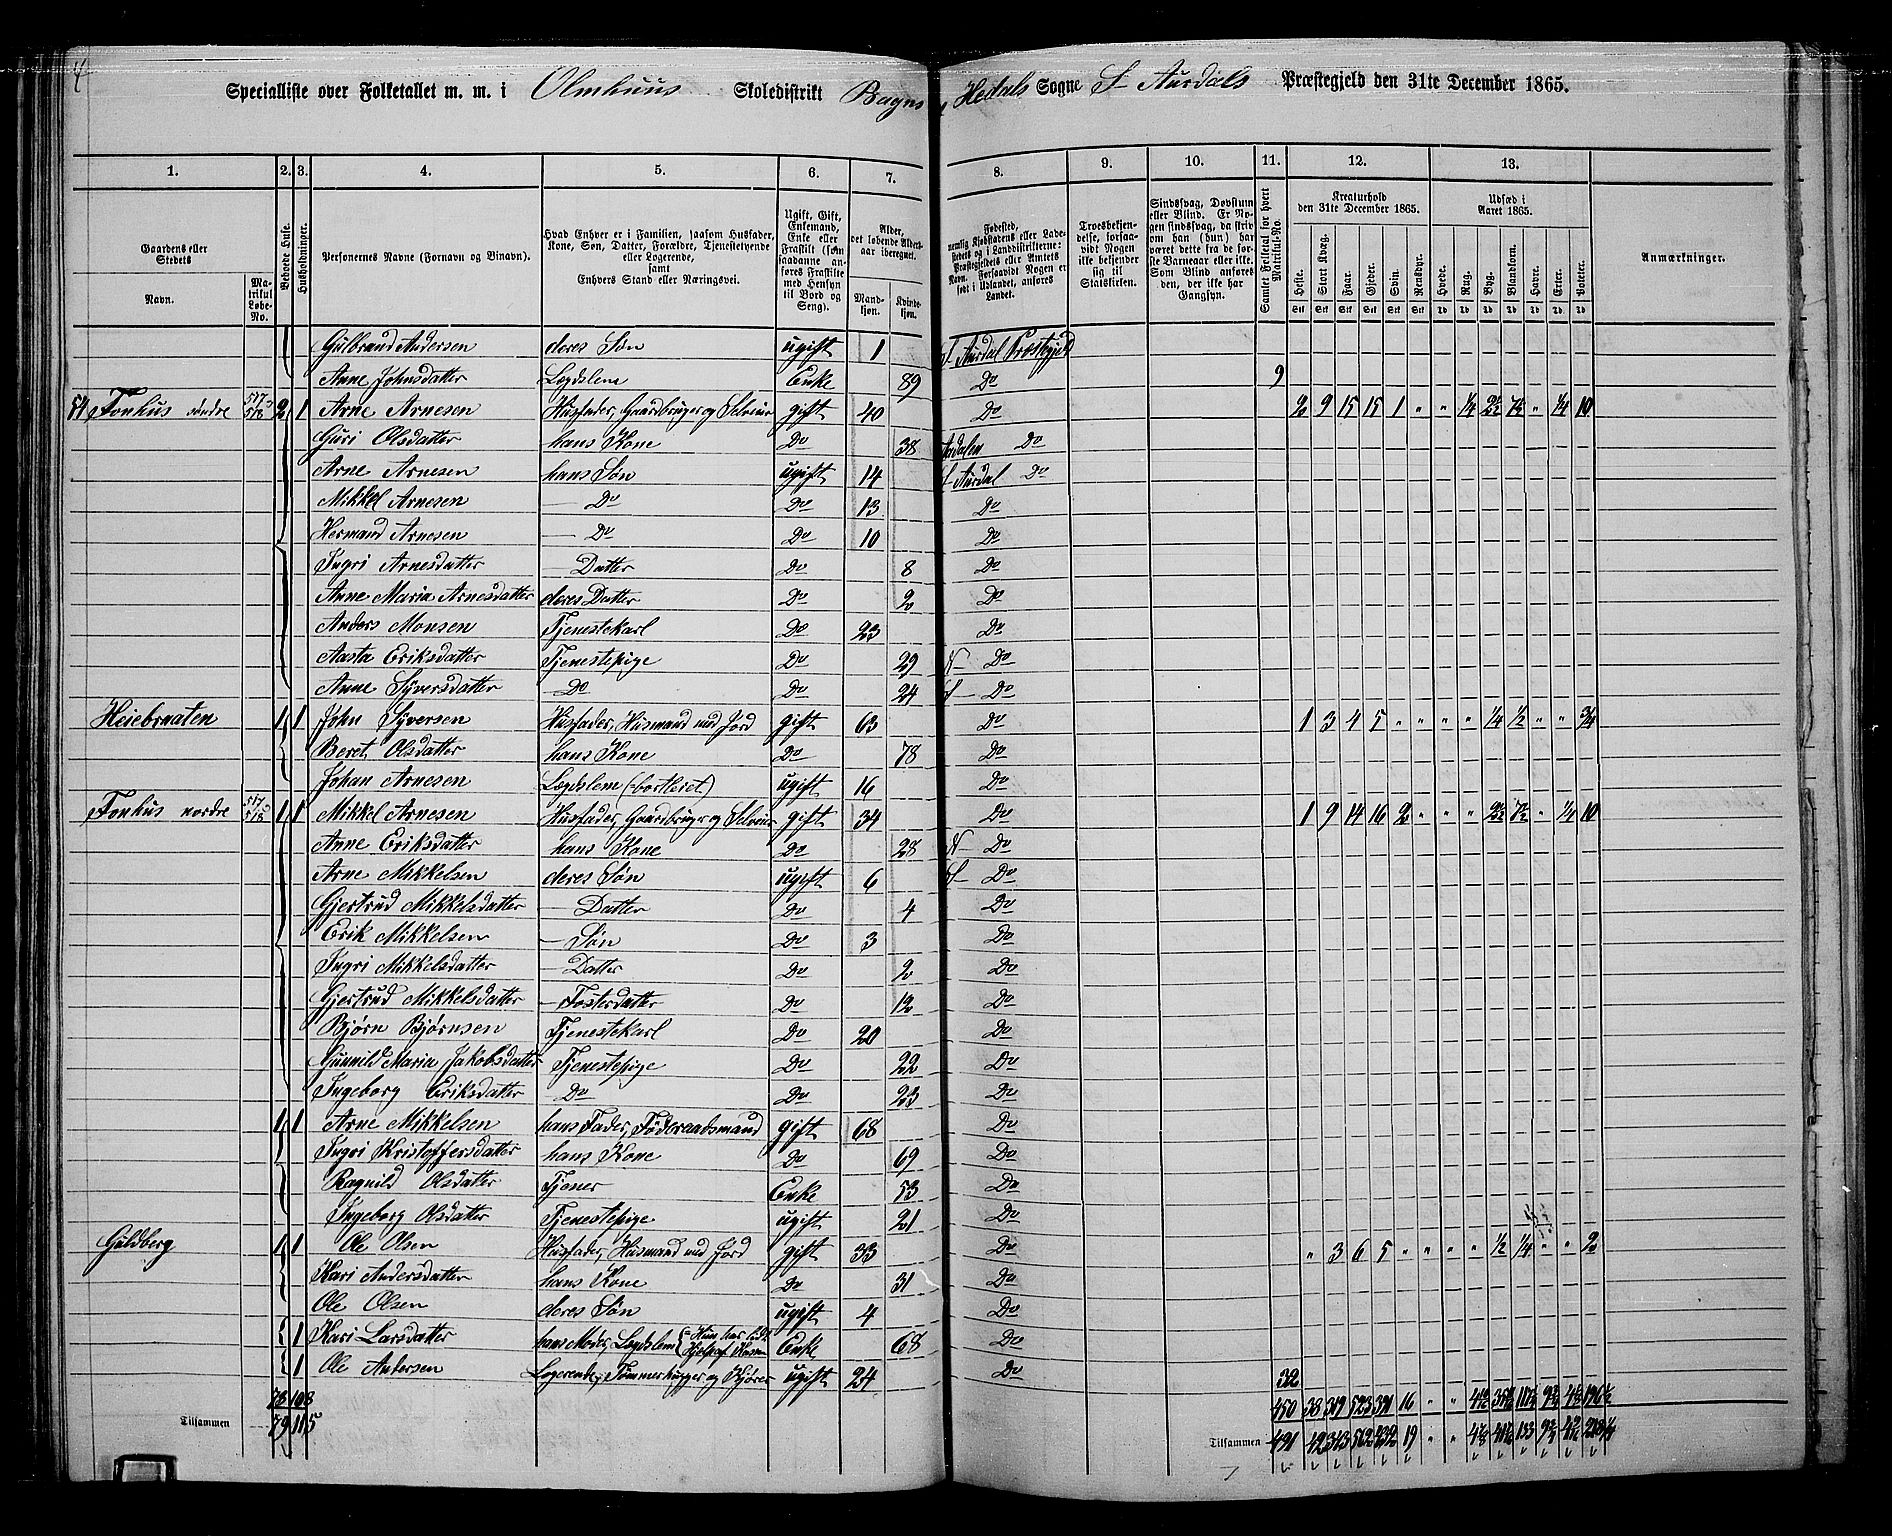 4
Specialliste over Folketallet m. m. i Olmhuus Skoledistrikt Bagns og Hedals Sogne S. Aurdals Præstegjeld den 31te December 1865.
1. 2. 3. 4. 5. 6. 7. 8. 9. 10. 11. 12. 13.
Gaardens eller Stedets
Navn.
Matrikul Løbe-No.
Beboede Huse.
Husholdninger.
Personernes Navne (Fornavn og Binavn).
Hvad Enhver er i Familien, saasom Husfader, Kone, Søn, Datter, Forældre, Tjenestetyende eller Logerende, samt Enhvers Stand eller Næringsvei.
Ugift, Gift, Enkemand, Enke eller Fraskilt (som saadanne anføres Fraskilte med Hensyn til Bord og Seng).
Alder, det løbende Aldersaar iberegnet.
Mandkjøn. Kvindekjøn.
Fødested, nemlig Kjøbstadens eller Ladestedets og i Landdistrikterne: Præstegjeldets eller Amtets Navn. Forsaavidt Nogen er født i Udlandet, anføres Landet.
Troesbekjendelse, forsaavidt Nogen ikke bekjender sig til Statskirken.
Sindssvag, Døvstum eller Blind. Er Nogen sindssvag, da skrives om han (hun) har været dette fra de første Barneaar eller ikke. Som Blind anføres den, der ikke har Gangsyn.
Samlet Folketal for hvert Matrikul-No.
Kreaturhold den 31te December 1865.
Heste. Stort Kvæg. Faar. Gjeder. Svin. Rensdyr.
Udsæd i Aaret 1865.
Hvede. Rug. Byg. Blandkorn. Havre. Erter. Poteter.
Anmærkninger.
Gulbrand Andersen deres Søn ugift 1 S. Aurdal Præstegjeld
Anne Johnsdatter Lægdslem Enke 89 Do 9
54 Fonhus søndre 517 518 2 1 Arne Arnesen Husfader, Gaardbruger og Selveier gift 40 Do 2 9 15 15 1 " " 1/4 2 1/2 7 1/2 " 1/4 10
Guri Olsdatter hans Kone Do 38 Do
Arne Arnesen hans Søn ugift 14 S. Aurdal Do
Mikkel Arnesen — Do Do 13 Do
Hermand Arnesen — Do Do 10 Do
Ingri Arnesdatter — Datter Do 8 Do
Anne Maria Arnesdatter deres Datter Do 2 Do
Anders Monsen Tjenestekarl Do 23 Do
Aasta Eriksdatter Tjenestepige Do 29 N — Do
Anne Syversdatter — Do Do 24 S — Do
Heiebraaten 1 1 John Syversen Husfader, Husmand med Jord gift 63 Do 1 3 4 5 " " " " 1/4 1/2 " " 3/4
Beret Olsdatter hans Kone Do 78 Do
Johan Arnesen Lægdslem (bortleiet) ugift 16 Do
Fonhus nordre 517 518 1 1 Mikkel Arnesen Husfader, Gaardbruger og Selveier gift 34 Do 1 9 14 16 2 " " " 2 1/2 7 1/2 " 1/4 10
Anne Eriksdatter hans Kone Do 28 N — Do
Arne Mikkelsen deres Søn ugift 6 S — Do
Gjertrud Mikkelsdatter — Datter Do 4 Do
Erik Mikkelsen — Søn Do 3 Do
Ingri Mikkelsdatter — Datter Do 2 Do
Gjertrud Mikkelsdatter — Fosterdatter Do 12 Do
Bjørn Bjørnsen Tjenestekarl Do 20 Do
Gunnild Maria Jakobsdatter Tjenestepige Do 22 Do
Ingeborg Eriksdatter — Do Do 23 Do
1 1 Arne Mikkelsen hans Fader, Føderaadsmand gift 68 Do
Ingri Kristoffersdatter hans Kone Do 69 Do
Ragnild Olsdatter Tjoner Enke 53 Do
Ingeborg Olsdatter Tjenestepige ugift 21 Do
Guldberg 1 1 Ole Olsen Husfader, Husmand med Jord gift 33 Do " 3 6 5 " " " " 1/2 1/4 " " 2
Kari Andersdatter hans Kone Do 31 Do
Ole Olsen deres Søn ugift 4 Do
1 Kari Larsdatter hans Moder, Lægdslem Enke 68 Do
1 Ole Andersen Logerende, Tømmerhugger og Kjører ugift 24 Do 32
78 108 450 38 319 523 391 16 " "
Tilsammen 79 115 Tilsammen 491 42 343 562 432 19 " "